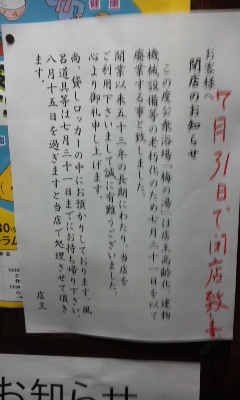 7月31日で閉店致します
お客様へ
閉店のお知らせ
この度公衆浴場「梅の湯」は店主高齢化、建物
機械設備等の老朽化のため七月三十一日を以て
廃業する事と致しました。
開業以来五十三年の長期にわたり、当店を
ご利用下さいまして誠に有難うございました。
心より御礼申し上げます。
尚、貸しロッカーの中にお預かりしております、風
呂道具等は七月三十一日までにお持ち帰り下さい。
八月十五日を過ぎますと当店で処理させて頂き
ます。
店主
お知らせ
健康